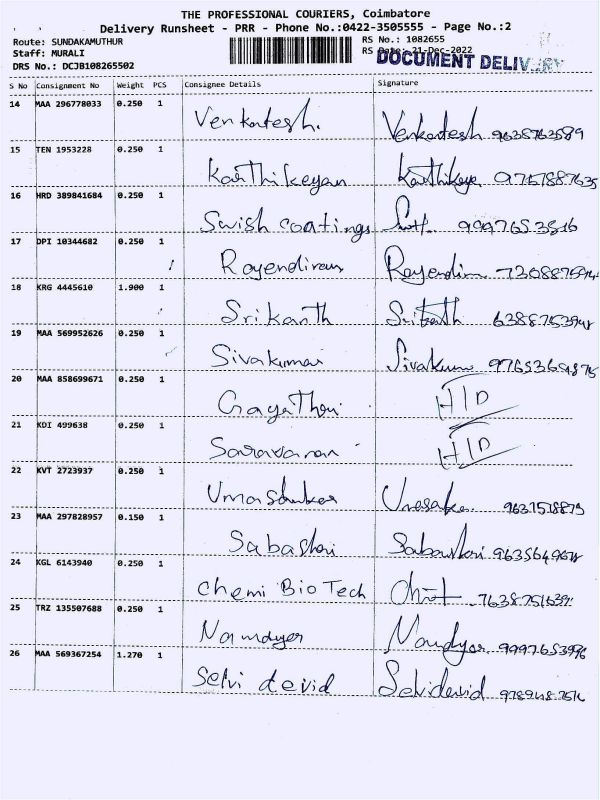 THE PROFESSIONAL COURIERS, Coimbatore
Delivery Runsheet - PRR - Phone No.:0422-3505555 - Page No.:2
Route: SUNDAKAMUTHUR RS No.: 1082655
Staff: MURALI RS Date: 21-Dec-2022
DRS No.: DCJB108265502 DOCUMENT DELIVERY
S No Consignment No Weight PCS Consignee Details Signature
14 MAA 296778033 0.250 1 Venkatesh. Venkatesh 9638763589
15 TEN 1953228 0.250 1 Karthikeyan Karthikeya 9757887635
16 HRD 389841684 0.250 1 Swish coatings 9997653816
17 DPI 10344682 0.250 1
18 KRG 4445610 1.900 1 Srikanth 6388753948
19 MAA 569952626 0.250 1 Sivakumar Sivakum
20 MAA 858699671 0.250 1 Gayathri H/D
21 KDI 499638 0.250 1 Saravanan H/D
22 KVT 2723937 0.250 1 Umashankar
23 MAA 297828957 0.150 1
24 KGL 6143940 0.250 1 Chemi Bio Tech
25 TRZ 135507688 0.250 1
26 MAA 569367254 1.270 1 Selvi devid Selvidevid